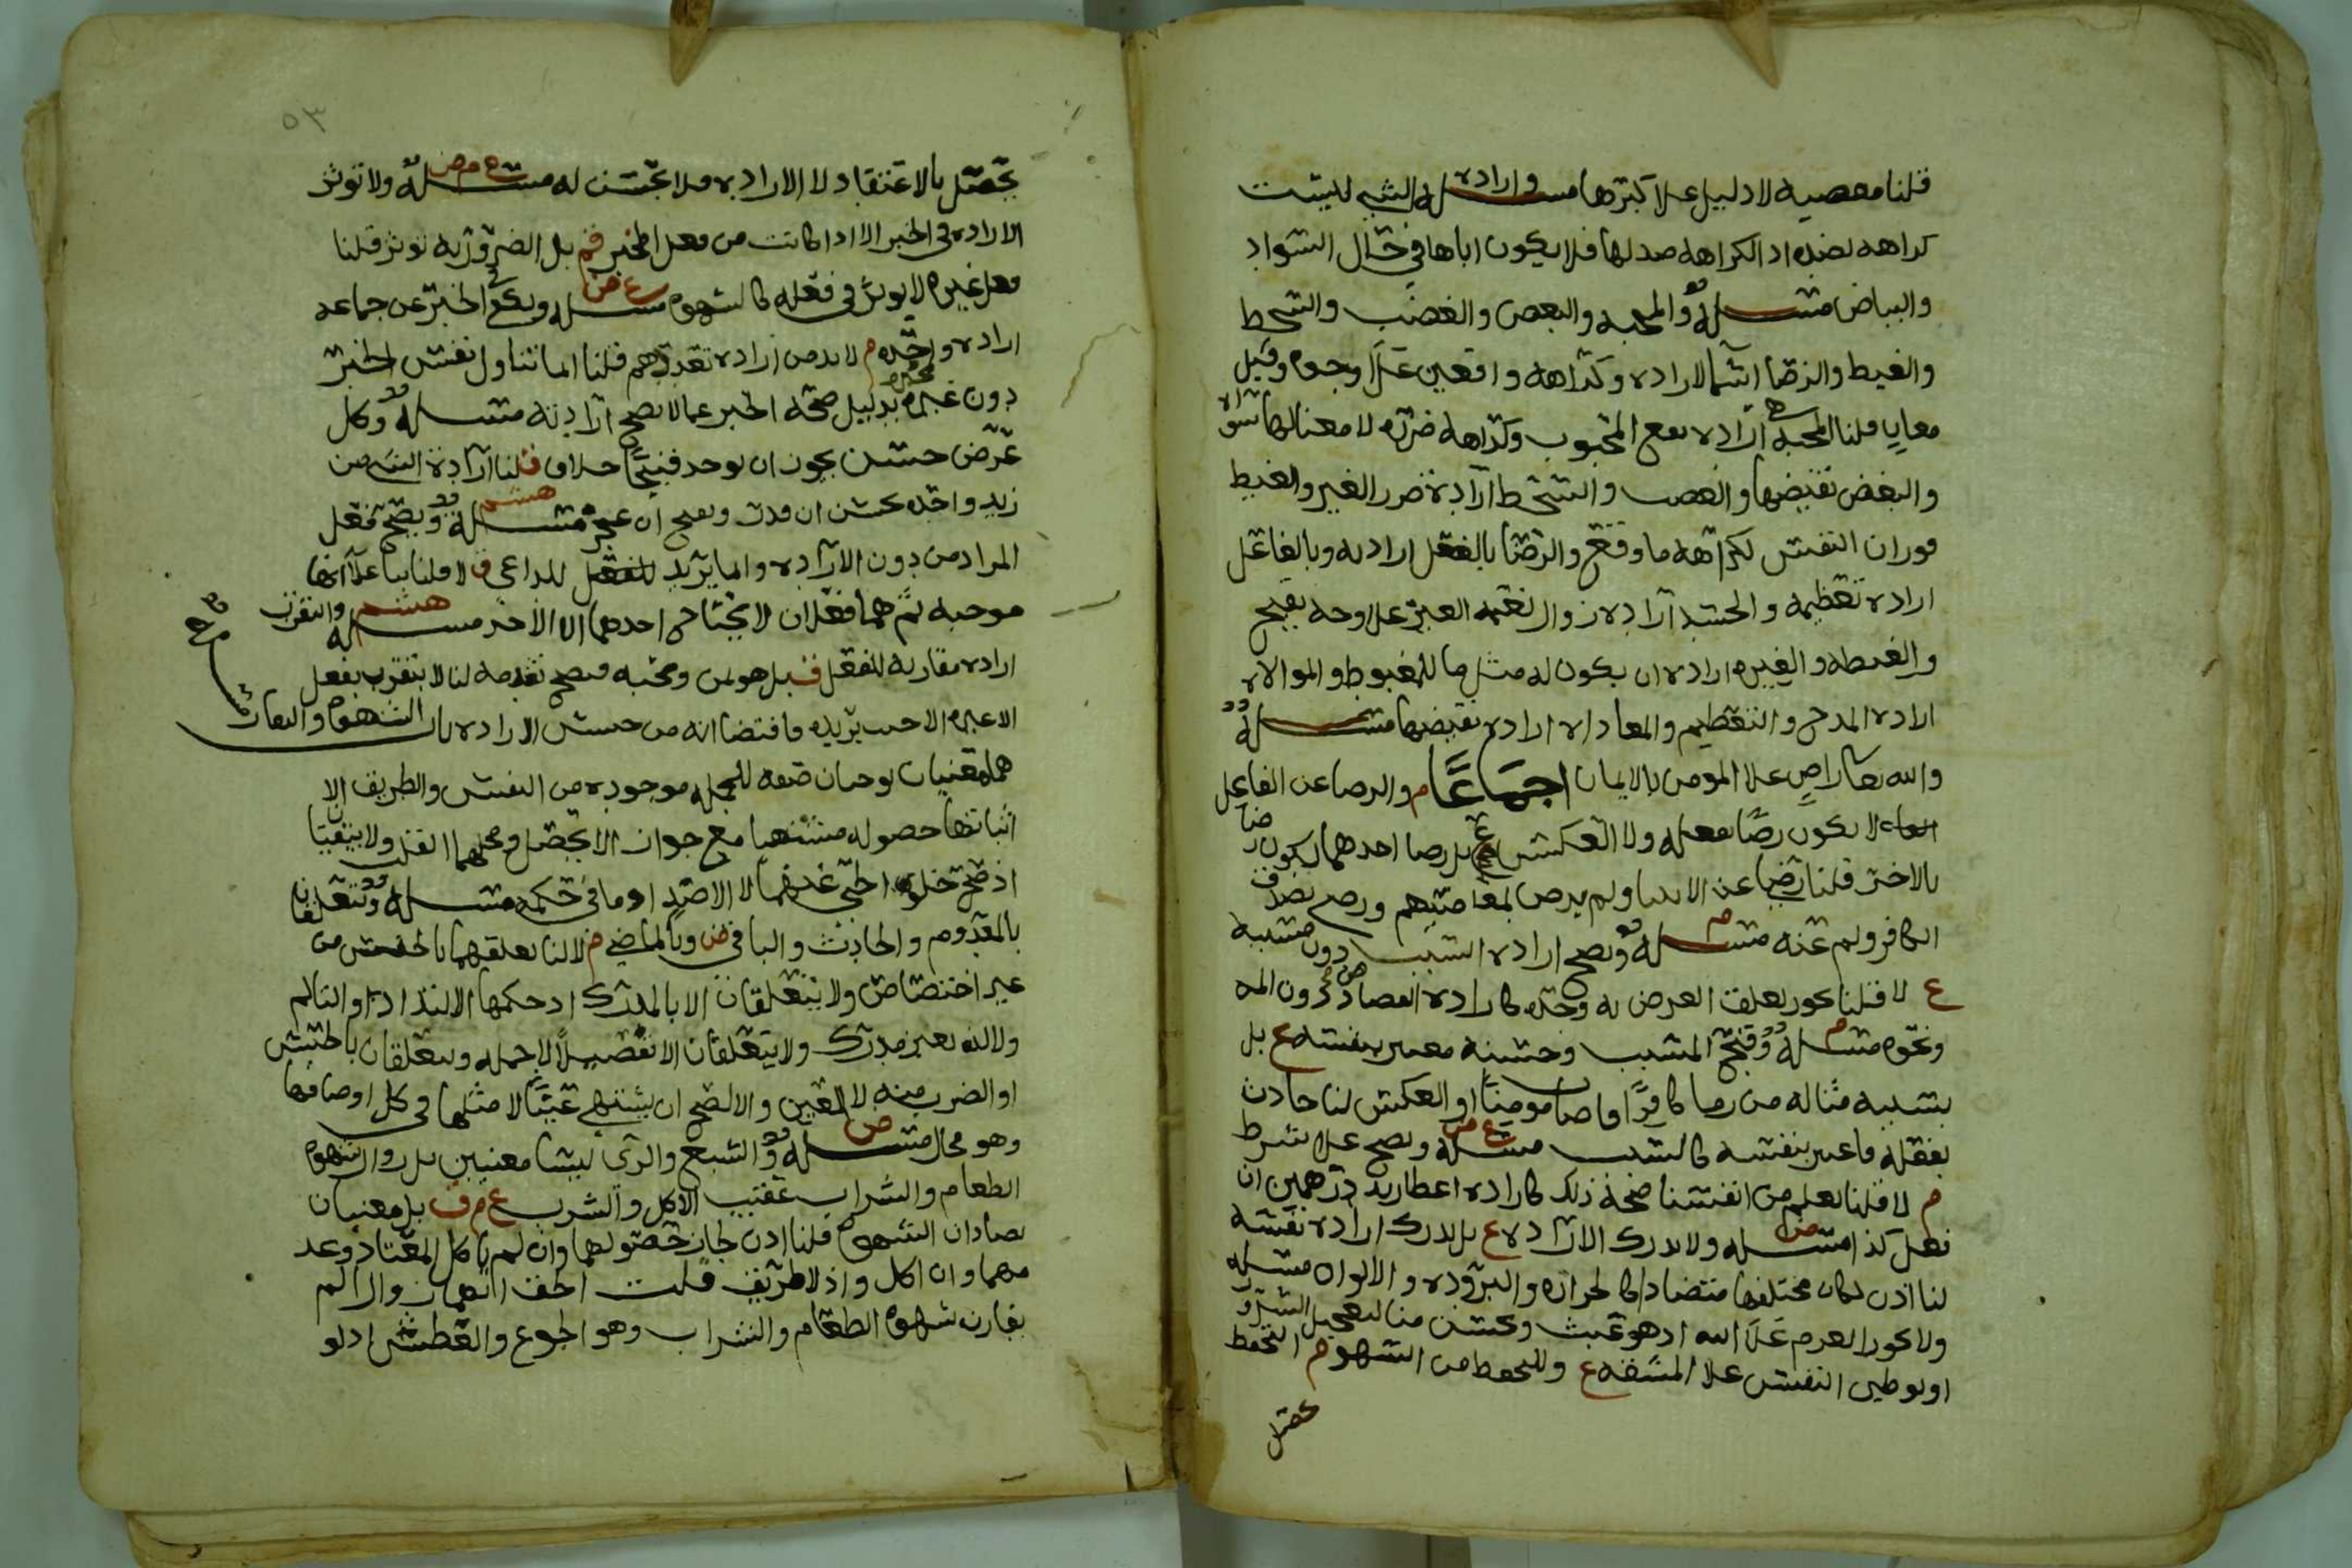 قلنا معصيه لا دليل علا كبرها مسله وارادة الشي ليست
كراهه لضده اد الكراهه ضد لها فلا يكون اياها في حال السواد
والبياض مسله والمحبه والبغض والغضب والسخط
والغيظ والرضا اسما لارادة وكراهه واقعين علا وجوه وقيل
معاني قلنا المحبه ارادة نفع المحبوب وكراهه ضره لا معنا لها سواه
والبغض نقيضها والغضب والسخط ارادة ضرر الغير والغيظ
فوران النفس لكراهه ما وقع والرضا بالفعل ارادته وبالفاعل
ارادة تعظيمه والحسد ارادة زوال نعمه الغير علا وجه يقبح
والغبطه والغيره ارادة ان يكون له مثل ما للمغبوط والموالاه
ارادة المدح والتعظيم والمعاداه ارادة نقيضها مسله
والله تعا راض علا المومن بالايمان اجماعا م والرضا عن الفاعل
لا يكون رضا بفعله ولا العكس ع بل رضا احدهما يكون رضا
بالاخر قلنا رضي عن الانبيا ولم يرض بمعاصيهم ورضي بصدق
الكافر ولم عنه مسله ويصح ارادة السبب دون مسببه
ع لا قلنا يجوز تعلق الغرض به وحده كارادة الفصاد دون الم
ونحوه مسله وقبح المسبب وحسنه معتبر بنفسه ع بل
بسببه مثاله من رما كافرا فاصاب مومنا او العكس لنا حادث
بفعله فاعتبر بنفسه كالسبب مسله ويصح علا شرط
م لا قلنا نعلم من انفسنا صحة ذلك كارادة اعطا زيد درهمين ان
فعل كذا مسله ولا تدرك الارادة ع بل تدرك ارادة نفسه
لنا اذن لكان مختلفها متضادا كالحراره والبروده والالوان مسله
ولا يجوز العزم علا الله اد هو عبث وحسن منا لتعجيل السرور
او توطين النفس علا المشقه ع وللتحفظ من السهو م التحفظ
يحصل
٥٣
يحصل بالاعتقاد لا الارادة فلا يحسن له مسله ولا توثر
الارادة في الخبر الا ادا كانت من فعل المخبر قم بل الضروريه توثر قلنا
فعل غيره لا يوثر في فعله كالشهوه مسله ويكفي الخبر عن جماعه
ارادة واحده م لا بد من ارادة تعددهم قلنا انما تتناول نفس الخبر
دون مخبره بدليل صحة الخبر عما لا يصح ارادته مسله وكل
عرض حسن يجوز ان يوجد قبيحا خلاف ق لنا ارادة الشي من
زيد واحده تحسن ان قدر وتقبح ان عجز مسله ويصح فعل
المراد من دون الارادة وانما يريد للفعل للداعي ق لا قلنا بنا علا انها
موجبه ثم هما فعلان لا يحتاج احدهما الا الاخر مسله والتقرب
ارادة مقارنه للفعل ق بل هو ومحبه فيصح تقدمه لنا لا يتقرب بفعل
الا غيره الا حيث يريده فاقتضا انه من جنس الارادة باب الشهوه والنفار
هما معنيان يوجبان صفه للجمله موجوده من النفس والطريق الا
اثباتها حصوله مشتهيا مع جواز الا يحصل ومحلهما القلب ولا يبقيان
اذ صح خلو الحي عنهما لا الا ضد او ما في حكمه مسله ويتعلقان
بالمعدوم والحادث والباقي ض وبالماضي م لا لنا تعلقهما بالجنس من
غير اختصاص ولا يتعلقان الا بالمدرك اد حكمها الالتذاذ او التالم
ولا لذه بغير مدرك ولا يتعلقان الا تفصيلا لا جمله ويتعلقان بالجنس
او الضرب منه لا العين والا لصح ان يشتهي عينا لا مثلها في كل اوصافها
وهو محال مسله والشبع والري ليسا معنيين بل زوال شهوه
الطعام والشراب عقيب الاكل والشرب ع م ق بل معنيان
يضادان الشهوه قلنا اذن لجاز حصولهما وان لم ياكل المعتاد وعد
مهما وان اكل واذ لا طريق قلت الحق انهما زوال الم
يقارن شهوه الطعام والشراب وهو الجوع والعطش اد لو